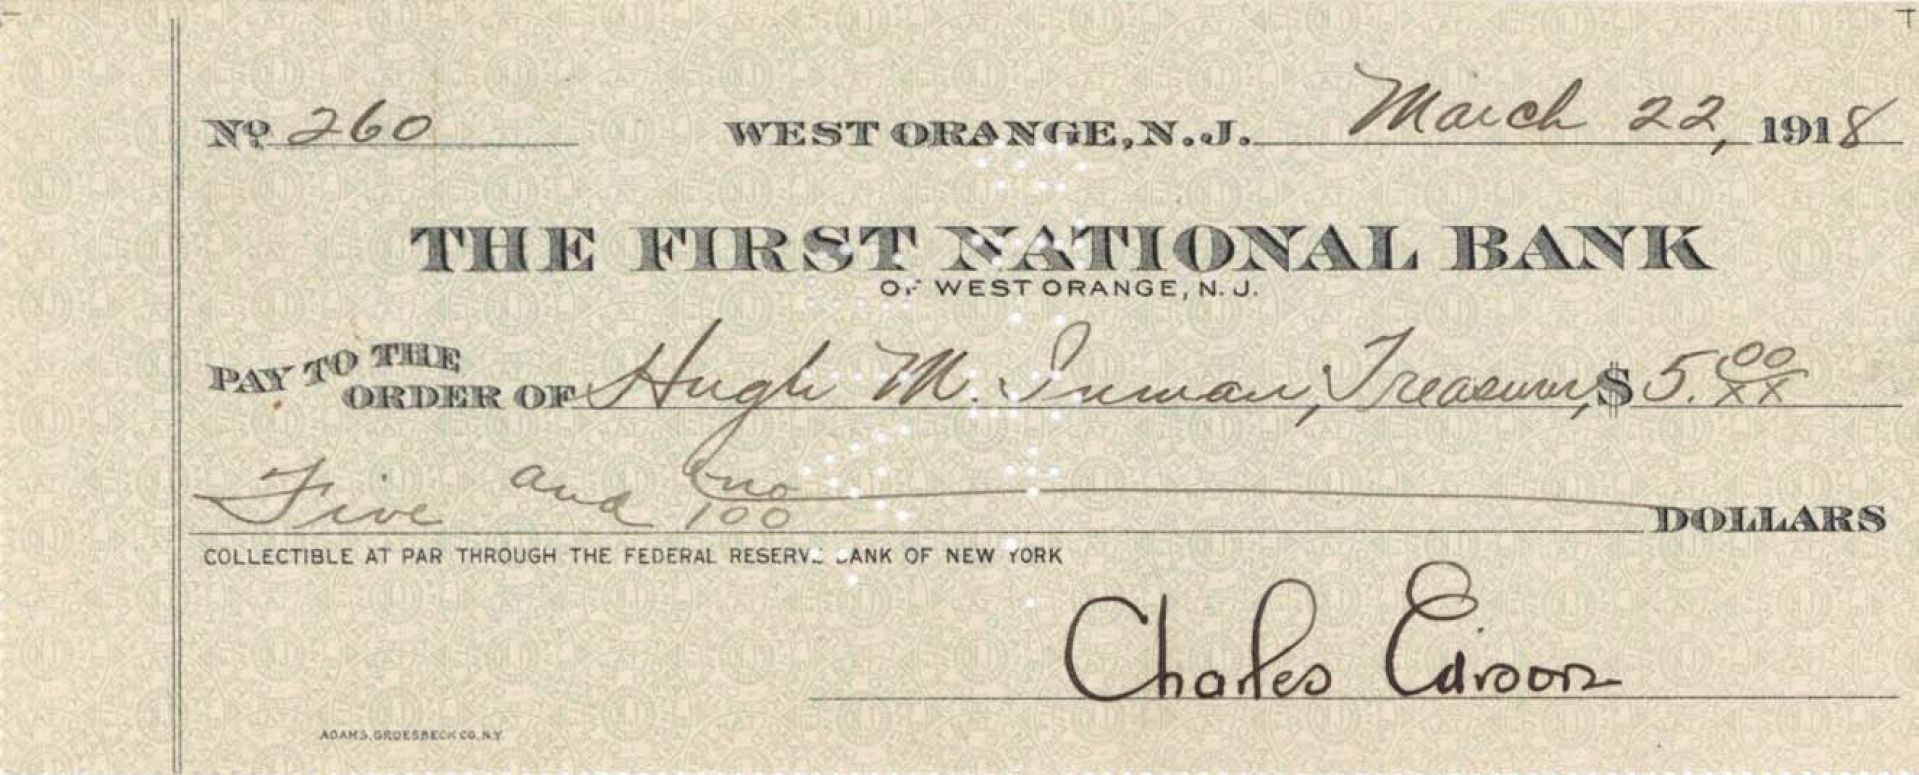 No 260 WEST ORANGE, N.J. March 22, 1918
THE FIRST NATIONAL BANK
OF WEST ORANGE, N. J.
PAY TO THE
ORDER OF Hugh M. Inman, Treasurer, $ 5.00/xx
Five and no/100 DOLLARS
COLLECTIBLE AT PAR THROUGH THE FEDERAL RESERVE BANK OF NEW YORK
Charles Edison
ADAMS, GROESBECK CO. N.Y.